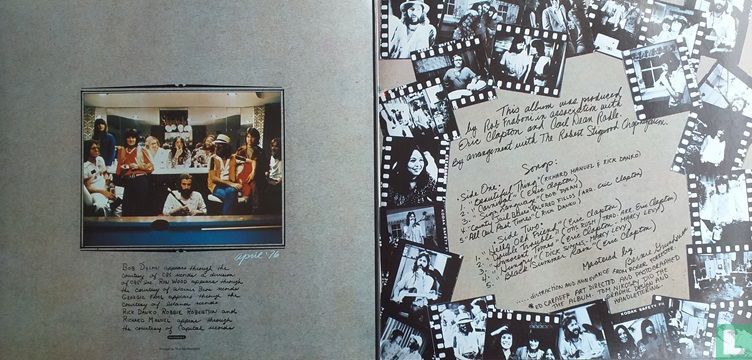 april '76
BOB DYLAN appears through the
courtesy of CBS records a division
of CBS Inc. RON WOOD appears through
the courtesy of Warner Bros. records
GEORGIE FAME appears through the
courtesy of Island records
RICK DANKO, ROBBIE ROBERTSON and
RICHARD MANUEL appear through
the courtesy of Capitol records
This album was produced
by Rob Fraboni in association with
Eric Clapton and Carl Dean Radle.
By arrangement with The Robert Stigwood Organisation.
Songs:
Side One:
1. "Beautiful Thing" (RICHARD MANUEL & RICK DANKO)
2. "Carnival" (Eric Clapton)
3. "Sign Language" (BOB DYLAN)
4. "County Jail Blues" (ALFRED FIELDS / ARR. Eric Clapton)
5. "All Our Past Times" (RICK DANKO)
Side Two:
1. "Hello Old Friend" (Eric Clapton)
2. "Double Trouble" (OTIS RUSH
3. "Innocent Times" (Eric Clapton, MARCY LEVY)
4. "Hungry" (DICK SIMS, MARCY LEVY)
5. "Black Summer Rain" (Eric Clapton)
Mastered by
Bernie Grundman
DISTRACTION AND ANNOYANCE FROM ROGER FORRESTER
ED CARAEFF ART DIRECTED AND PHOTOGRAPHED
THE ALBUM. TOM NIKOSEY DID THE
GRAPHIC DESIGN AND
KODAK SAFETY
LastDodo